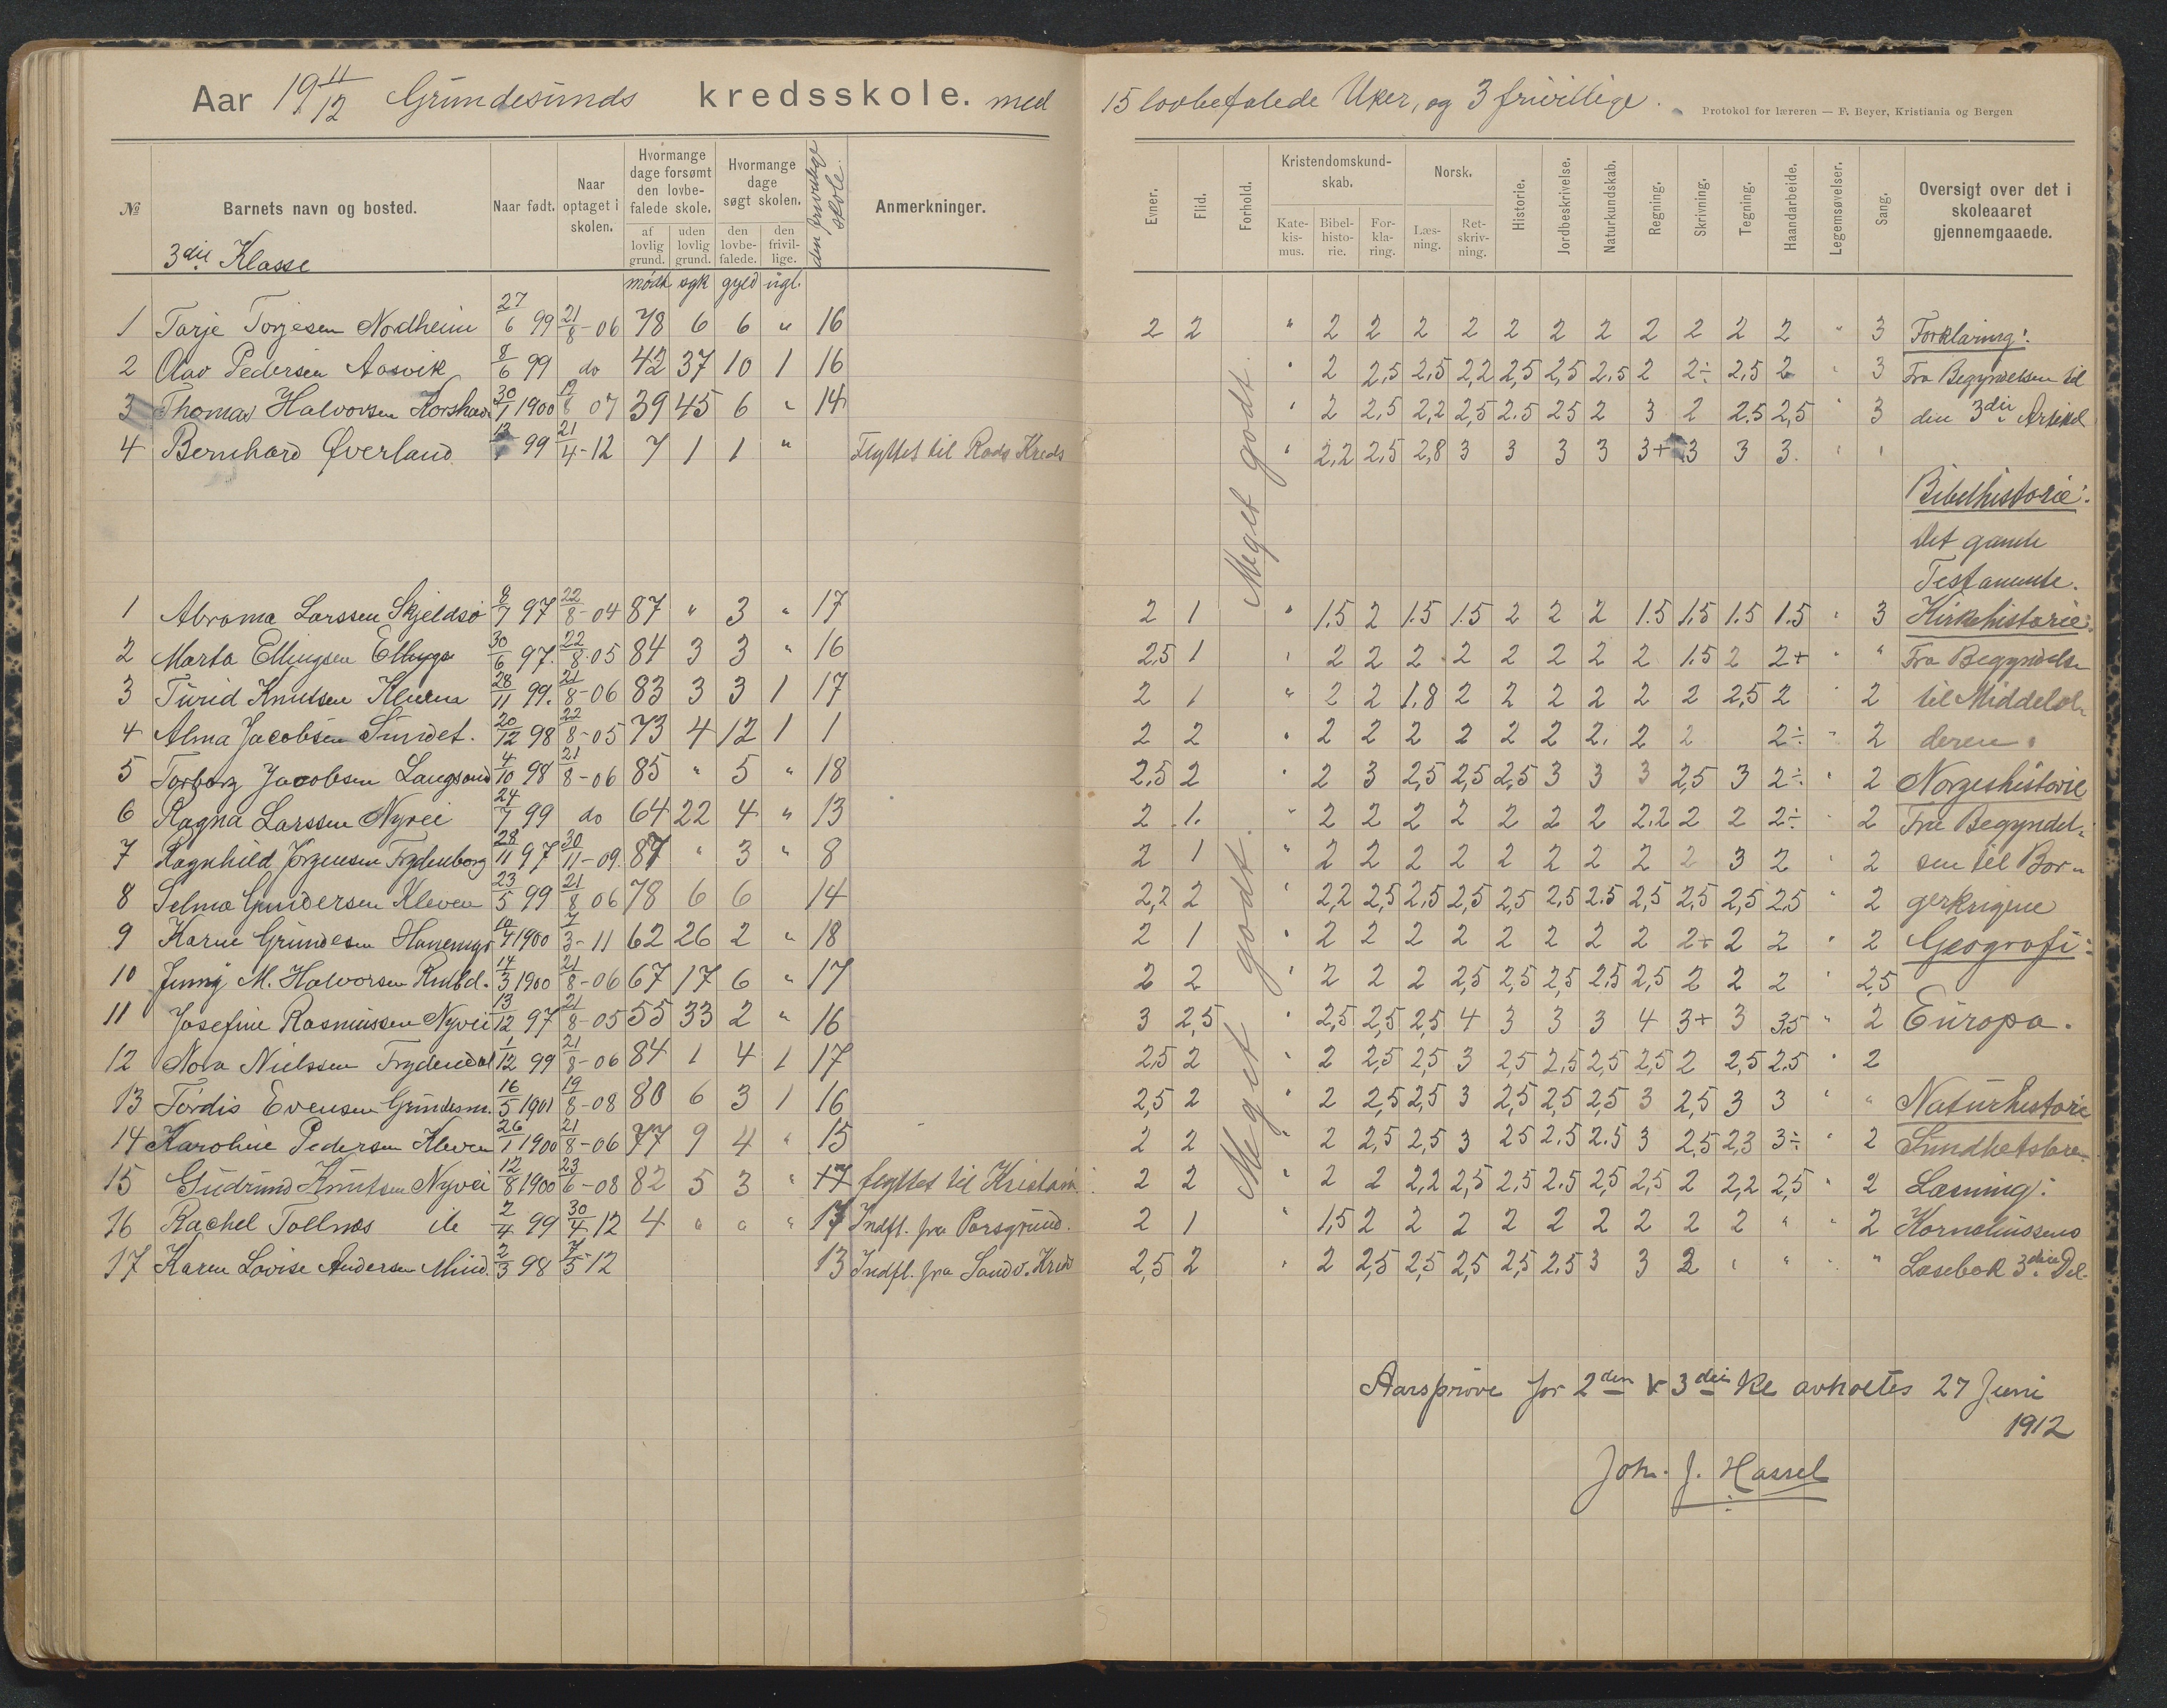 Aar 19 11/12 Grundesunds kredsskole. med 15 lovbefalede Uker, og 3 frivillige.
Protokol for læreren — F. Beyer, Kristiania og Bergen
№ Barnets navn og bosted. Naar født. Naar optaget i skolen. Hvormange dage forsømt den lovbefalede skole. af lovlig grund. uden lovlig grund. Hvormange dage søgt skolen. den lovbefalede. den frivillige. den frivillige skole. Anmerkninger.
Evner. Flid. Forhold. Kristendomskundskab. Katekismus. Bibelhistorie. Forklaring. Norsk. Læsning. Retskrivning. Historie. Jordbeskrivelse. Naturkundskab. Regning. Skrivning. Tegning. Haandarbeide. Legemsøvelser. Sang. Oversigt over det i skoleaaret gjennemgaaede.
3die Klasse
mødt syk gyld ugl.
Meget godt.
1 Tarje Torjesen Nordheim 27/6 99 21/8-06 78 6 6 " 16 2 2 " 2 2 2 2 2 2 2 2 2 2 2 " 3 Forklaring:
2 Olav Pedersen Aasvik 8/6 99 do 42 37 10 1 16 " 2 2,5 2,5 2,2 2,5 2,5 2.5 2 2÷ 2,5 2 " 3 Fra Begyndelsen til
3 Thomas Halvorsen Korshavn 30/1 1900 19/8 07 39 45 6 " 14 " 2 2,5 2,2 2,5 2.5 25 2 3 2 2.5 2,5 " 3 den 3die Artikel
4 Bernhard Øverland 99 21/4-12 7 1 1 " Flyttet til Rods Kreds " 2,2 2,5 2,8 3 3 3 3 3+ 3 3 3. " "
Bibelhistorie:
Det gamle
Testamente.
Meget godt.
1 Abrama Larssen Skjeldsø 8/7 97 22/8-04 87 " 3 " 17 2 1 " 1.5 2 1.5 1.5 2 2 2 1.5 1.5 1.5 1.5 " 3 Kirkehistorie:
2 Marta Ellingsen 30/6 97. 22/8-05 84 3 3 " 16 2,5 1 " 2 2 2 2 2 2 2 2 1.5 2 2+ " " Fra Begyndelse
3 Turid Knutsen 28/11 99. 21/8-06 83 3 3 1 17 2 1 " 2 2 1.8 2 2 2 2 2 2 2,5 2 " 2 til Middelal-
4 Alma Jacobsen Sundet. 20/12 98 22/8-05 73 4 12 1 1 2 2 " 2 2 2 2 2 2 2. 2 2 2÷ " 2 deren.
5 Torborg Jacobsen Langsand 4/10 98 21/8-06 85 " 5 " 18 2.5 2 " 2 3 2,5 2,5 2,5 3 3 3 2,5 3 2÷ " 2 Norgeshistorie
6 Ragna Larssen Nyvei 24/7 99 do 64 22 4 " 13 2 1. " 2 2 2 2 2 2 2 2.2 2 2 2÷ " 2 Fra Begyndel-
7 Ragnhild Jørgensen Frydenborg 28/11 97 30/11-09. 87 " 3 " 8 2 1 " 2 2 2 2 2 2 2 2 2 3 2 " 2 sen til Bor-
8 Selma Gundersen Kleven 23/5 99 21/8 06 78 6 6 14 2,2 2 " 2,2 2,5 2,5 2,5 2,5 2.5 2.5 2,5 2,5 2,5 2.5 " 2 gerkrigene
9 Karne Grundesen 1900 7/3-11 62 26 2 " 18 2 1 " 2 2 2 2 2 2 2 2 2+ 2 2 " 2 Geografi:
10 Jenny M. Halvorsen 14/3 1900 21/8-06 67 17 6 " 17 2 2 " 2 2 2 2,5 2,5 2,5 2.5 2,5 2 2 2 " 2,5
11 Josefine Rasmussen Nyvei 13/12 97 21/8-05 55 33 2 " 16 3 2,5 " 2,5 2,5 2,5 4 3 3 3 4 3+ 3 3,5 " 2 Europa.
12 Nora Nielssen Frydendal 1/12 99 21/8-06 84 1 4 1 17 2.5 2 " 2 2,5 2,5 3 2,5 2.5 2,5 2,5 2 2,5 2.5 " 2
13 Tordis Evensen Grundesn. 16/5 1901 19/8-08 80 6 3 1 16 2,5 2 " 2 2,5 2,5 3 2,5 2,5 2,5 3 2,5 3 3 " " Naturhistorie
14 Karoline Pedersen Kleven 26/1 1900 21/8-06 77 9 4 " 15 2 2 " 2 2,5 2,5 3 25 2.5 2.5 3 2,5 2,3 3÷ " 2 Sundhetslære
15 Gudrund Knutsen Nyvei 12/8 1900 23/6-08 82 5 3 " 17 flyttet til Kristian. 2 2 " 2 2 2,2 2,5 2,5 2.5 2,5 2,5 2 2,2 2,5 " 2 Læsning:
16 Rachel Tollnæs 2/4 99 30/4 12 4 " " " 17 Indfl. fra Porsgrund. 2 1 " 1,5 2 2 2 2 2 2 2 2 2 " " 2 Korneliussens
17 Karen Lovise Andersen 2/3 98 7/5 12 13 Indfl. fra Sandv. Kreds 2,5 2 " 2 2,5 2,5 2,5 2,5 2.5 3 3 2 " " " " Læsebok 3die Del.
Aarsprøve for 2den & 3die Kl avholtes 27 Juni
1912
Joh. J. Hassel